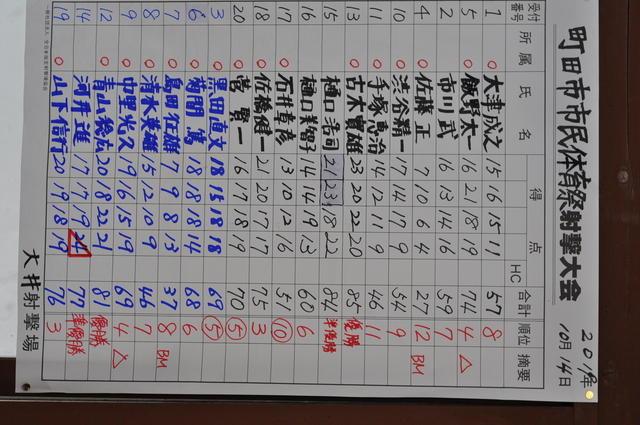 町田市市民体育祭射撃大会
2019年
10月14日
受付番号 所属 氏名 得点 HC 合計 順位 摘要
1 ○ 大津成之 15 16 15 11 57 8
5 ○ 飯野太一 16 21 18 19 74 4 △
2 市川武 16 13 14 16 59 7
4 ○ 佐藤正 7 10 6 4 27 12 BM
10 ○ 渋谷精一 17 14 17 9 54 9
11 ○ 手塚恵治 14 12 11 9 46 11
13 ○ 古木實雄 23 20 22 20 85 優勝
15 樋口浩司 21 23 18 22 84 準優勝
16 樋口美智子 14 14 19 13 60 6
17 ○ 石井喜彦 13 10 12 16 51 10
18 ○ 佐橋健一 21 20 17 17 75 3
20 菅賢一 16 17 18 19 70 5
3 ○ 黒田直文 18 15 18 18 69 5
6 ○ 菊間篤 18 18 18 14 68 6
7 ○ 島田征雄 7 9 8 13 37 8 BM
8 ○ 清水英雄 15 12 10 9 46 7
9 ○ 中里光久 19 16 15 19 69 4 △
12 ○ 青山稔広 20 18 22 21 81 優勝
14 河井 17 17 19 24 77 準優勝
19 ○ 山下信行 20 19 18 19 76 3
大井射撃場